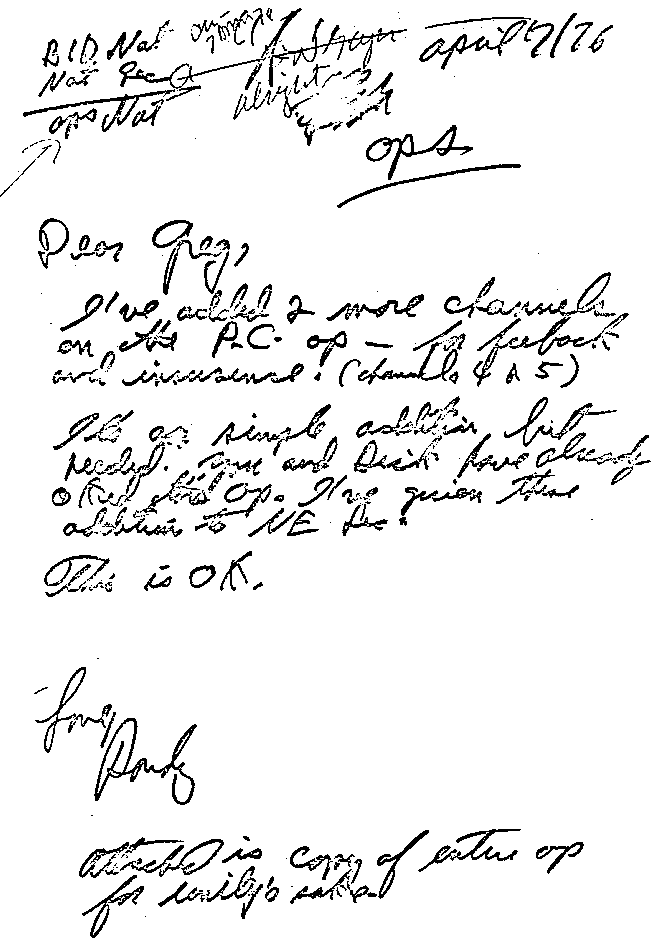 BID Nat
Nat Sec
Ops Nat
alright
April 7/76
Ops
Dear Greg,
I've added 2 more channels
on the P.C. op — for feeback
and insurence. (channels 4 & 5)
Its a simple addition but
needed. You and Dick have already
OKed this op. I've given these
addition to NE Sec.
This is OK.
Love,
Randy
attached is copy of entire op
for sake